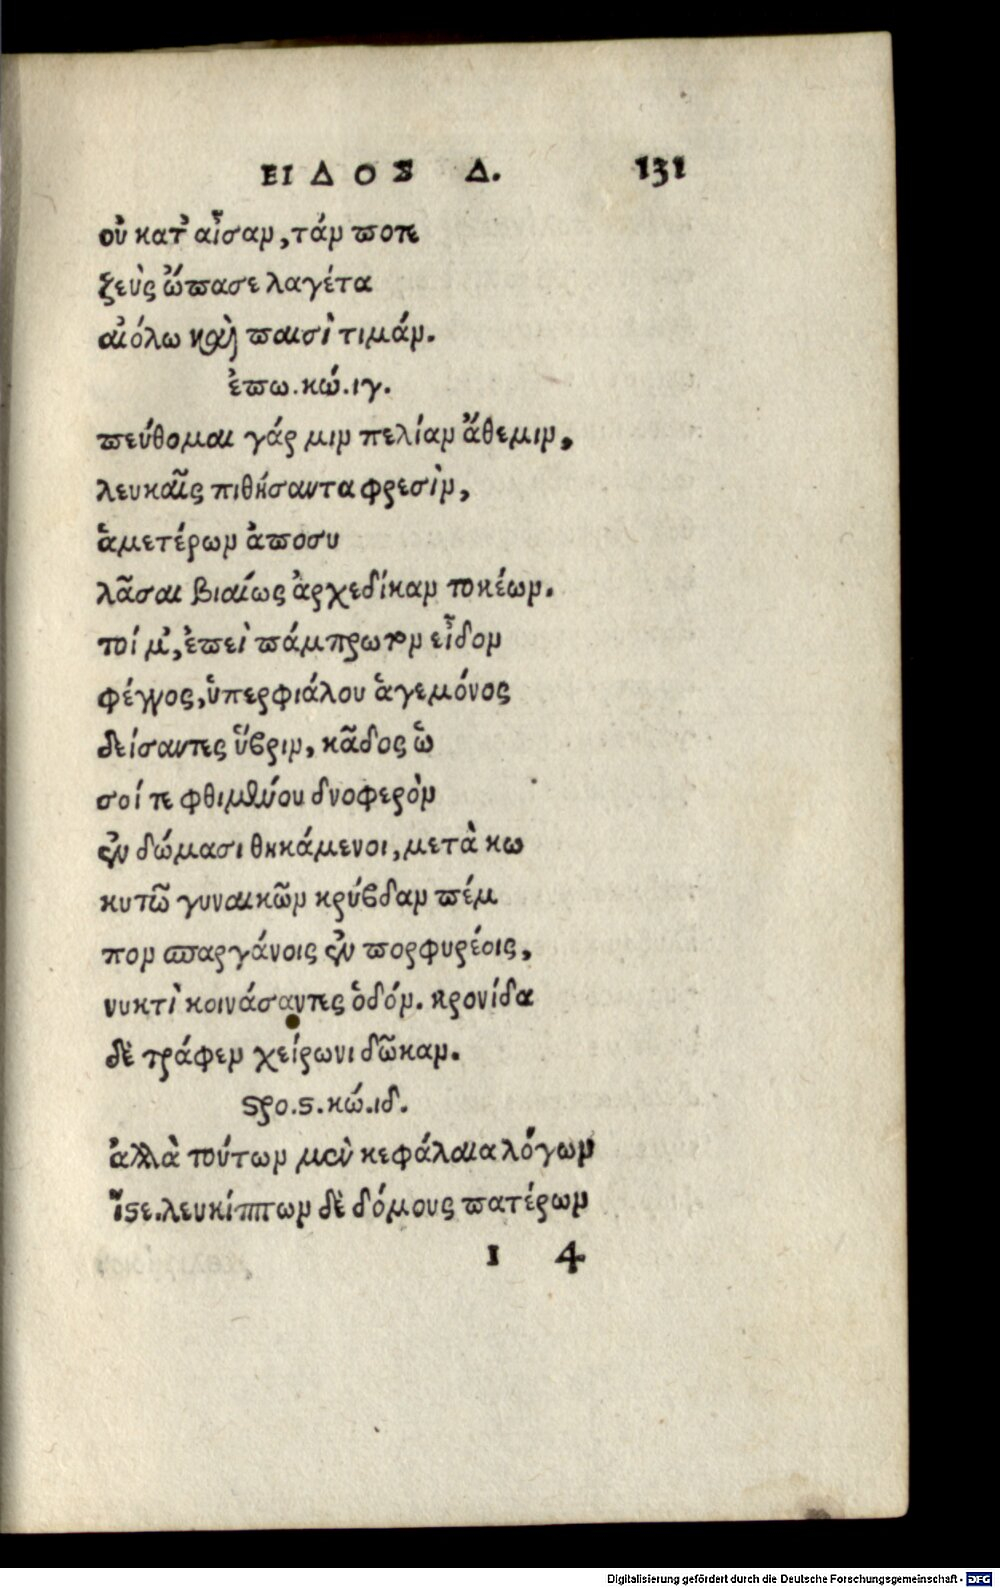 ΕΙΔΟΣ Δ. 131
οὐ κατ' αἶσαν, τάν ποτε
ζεὺς ὤπασε λαγέτα
αἰόλω καὶ παισὶ τιμάν.
ἐπω. κώ. ιγ.
πεύθομαι γάρ μιν πελίαν ἄθεμιν,
λευκαῖς πιθήσαντα φρεσὶν,
ἁμετέρων ἀποσυ
λᾶσαι βιαίως ἀρχεδίκαν τοκέων.
τοί μ', ἐπεὶ πάμπρωτον εἶδον
φέγγος, ὑπερφιάλου ἁγεμόνος
δείσαντες ὕβριν, κᾶδος ὡ
σοί τε φθιμένου δνοφερὸν
ἐν δώμασι θηκάμενοι, μετὰ κω
κυτῶ γυναικῶν κρύβδαν πέμ
πον σπαργάνοις ἐν πορφυρέοις,
νυκτὶ κοινάσαντες ὁδόν. κρονίδα
δὲ τράφεν χείρωνι δῶκαν.
στρο. ς. κώ. ιδ.
ἀλλὰ τούτων μὲν κεφάλαια λόγων
ἴστε. λευκίππων δὲ δόμους πατέρων
I 4
Digitalisierung gefördert durch die Deutsche Forschungsgemeinschaft - DFG